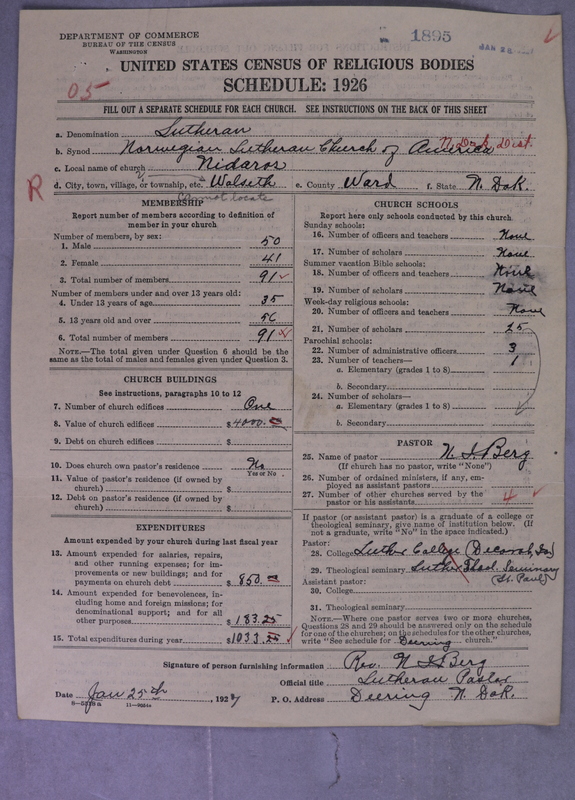 1895
JAN 28
DEPARTMENT OF COMMERCE
BUREAU OF THE CENSUS
WASHINGTON
UNITED STATES CENSUS OF RELIGIOUS BODIES
05
SCHEDULE: 1926
FILL OUT A SEPARATE SCHEDULE FOR EACH CHURCH. SEE INSTRUCTIONS ON THE BACK OF THIS SHEET
a. Denomination Lutheran
b. Synod Norwegian Lutheran Church of America N. Dak. Dist.
c. Local name of church Nidaros
R d. City, town, village, or township, etc. Wolseth e. County Ward f. State N. Dak.
Cannot locate
MEMBERSHIP
Report number of members according to definition of
member in your church
Number of members, by sex:
1. Male 50
2. Female 41
3. Total number of members 91
Number of members under and over 13 years old:
4. Under 13 years of age 35
5. 13 years old and over 56
6. Total number of members 91
NOTE.—The total given under Question 6 should be the
same as the total of males and females given under Question 3.
CHURCH BUILDINGS
See instructions, paragraphs 10 to 12
7. Number of church edifices One
8. Value of church edifices $4000.
9. Debt on church edifices $
10. Does church own pastor's residence No
Yes or No
11. Value of pastor's residence (if owned by
church) $
12. Debt on pastor's residence (if owned by
church) $
EXPENDITURES
Amount expended by your church during last fiscal year
13. Amount expended for salaries, repairs,
and other running expenses; for im-
provements or new buildings; and for
payments on church debt $850.
14. Amount expended for benevolences, in-
cluding home and foreign missions; for
denominational support; and for all
other purposes $183.25
15. Total expenditures during year $1033.25
CHURCH SCHOOLS
Report here only schools conducted by this church
Sunday schools:
16. Number of officers and teachers None
17. Number of scholars None
Summer vacation Bible schools:
18. Number of officers and teachers None
19. Number of scholars None
Week-day religious schools:
20. Number of officers and teachers None
21. Number of scholars 25
Parochial schools:
22. Number of administrative officers 3
23. Number of teachers— 1
a. Elementary (grades 1 to 8)
b. Secondary
24. Number of scholars—
a. Elementary (grades 1 to 8)
b. Secondary
PASTOR
25. Name of pastor N. I. Berg
(If church has no pastor, write "None")
26. Number of ordained ministers, if any, em-
ployed as assistant pastors
27. Number of other churches served by the
pastor or his assistants 4
If pastor (or assistant pastor) is a graduate of a college or
theological seminary, give name of institution below. (If
not a graduate, write "No" in the space indicated.)
Pastor:
28. College Luther College (Decorah, Ia)
29. Theological seminary Luther Theol. Seminary
(St. Paul)
Assistant pastor:
30. College
31. Theological seminary
NOTE.—Where one pastor serves two or more churches,
Questions 28 and 29 should be answered only on the schedule
for one of the churches; on the schedules for the other churches,
write "See schedule for Deering church."
Signature of person furnishing information Rev. N I Berg
Official title Lutheran Pastor
Date Jan 25th, 1927 P. O. Address Deering N. Dak.